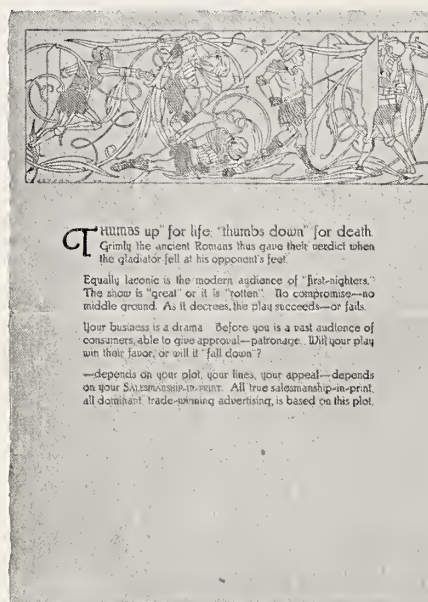 THUMBS up" for life; "thumbs down" for death.
Grimly the ancient Romans thus gave their verdict when
the gladiator fell at his opponent's feet.
Equally laconic is the modern audience of "first-nighters."
The show is "great" or it is "rotten". No compromise—no
middle ground. As it decrees, the play succeeds—or fails.
Your business is a drama. Before you is a vast audience of
consumers, able to give approval—patronage. Will your play
win their favor, or will it "fall down"?
—depends on your plot, your lines, your appeal—depends
on your SALESMANSHIP-IN-PRINT. All true salesmanship-in-print,
all dominant trade-winning advertising, is based on this plot.